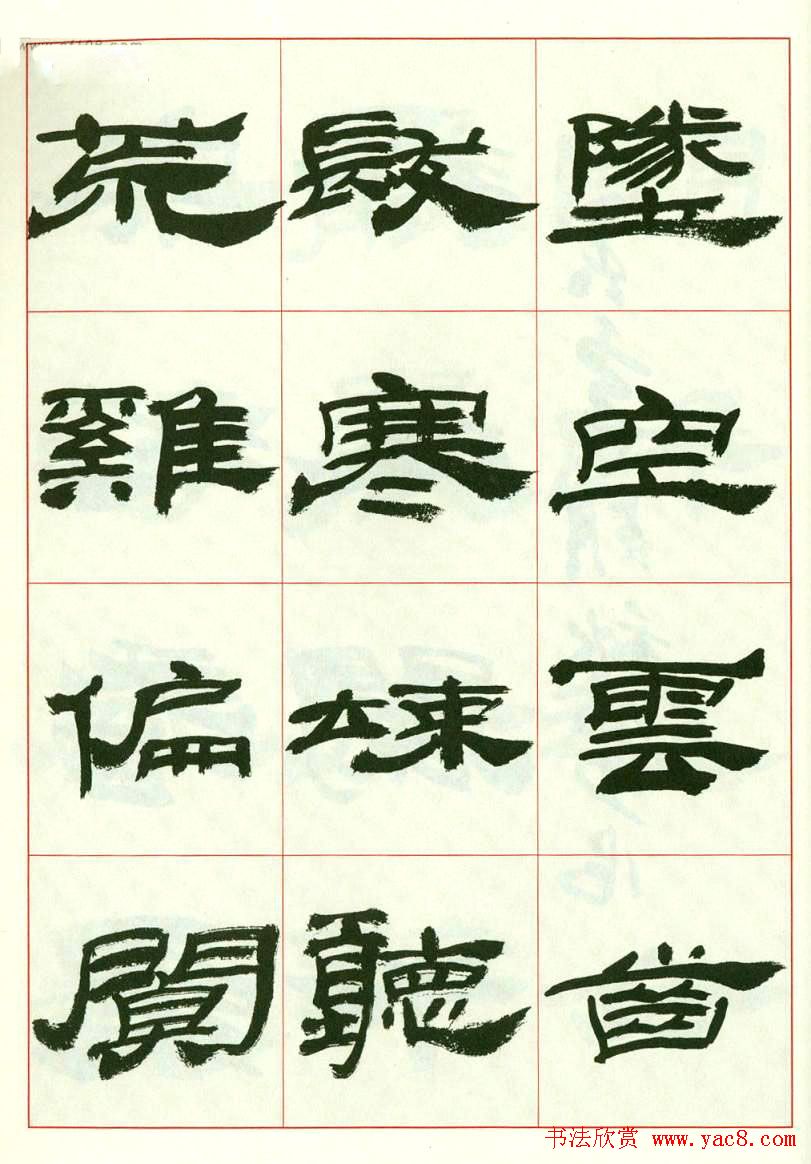 墜空雲齒
髮寒竦聽
荒雞偏闃
书法欣赏 www.yac8.com